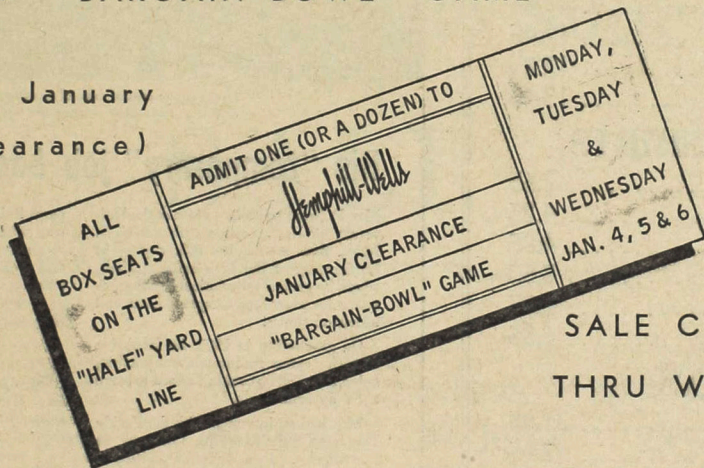 January
earance)
ALL
BOX SEATS
ON THE
"HALF" YARD
LINE
ADMIT ONE (OR A DOZEN) TO
Hemphill-Wells
JANUARY CLEARANCE
"BARGAIN-BOWL" GAME
MONDAY,
TUESDAY
&
WEDNESDAY
JAN. 4, 5 & 6
SALE C
THRU W